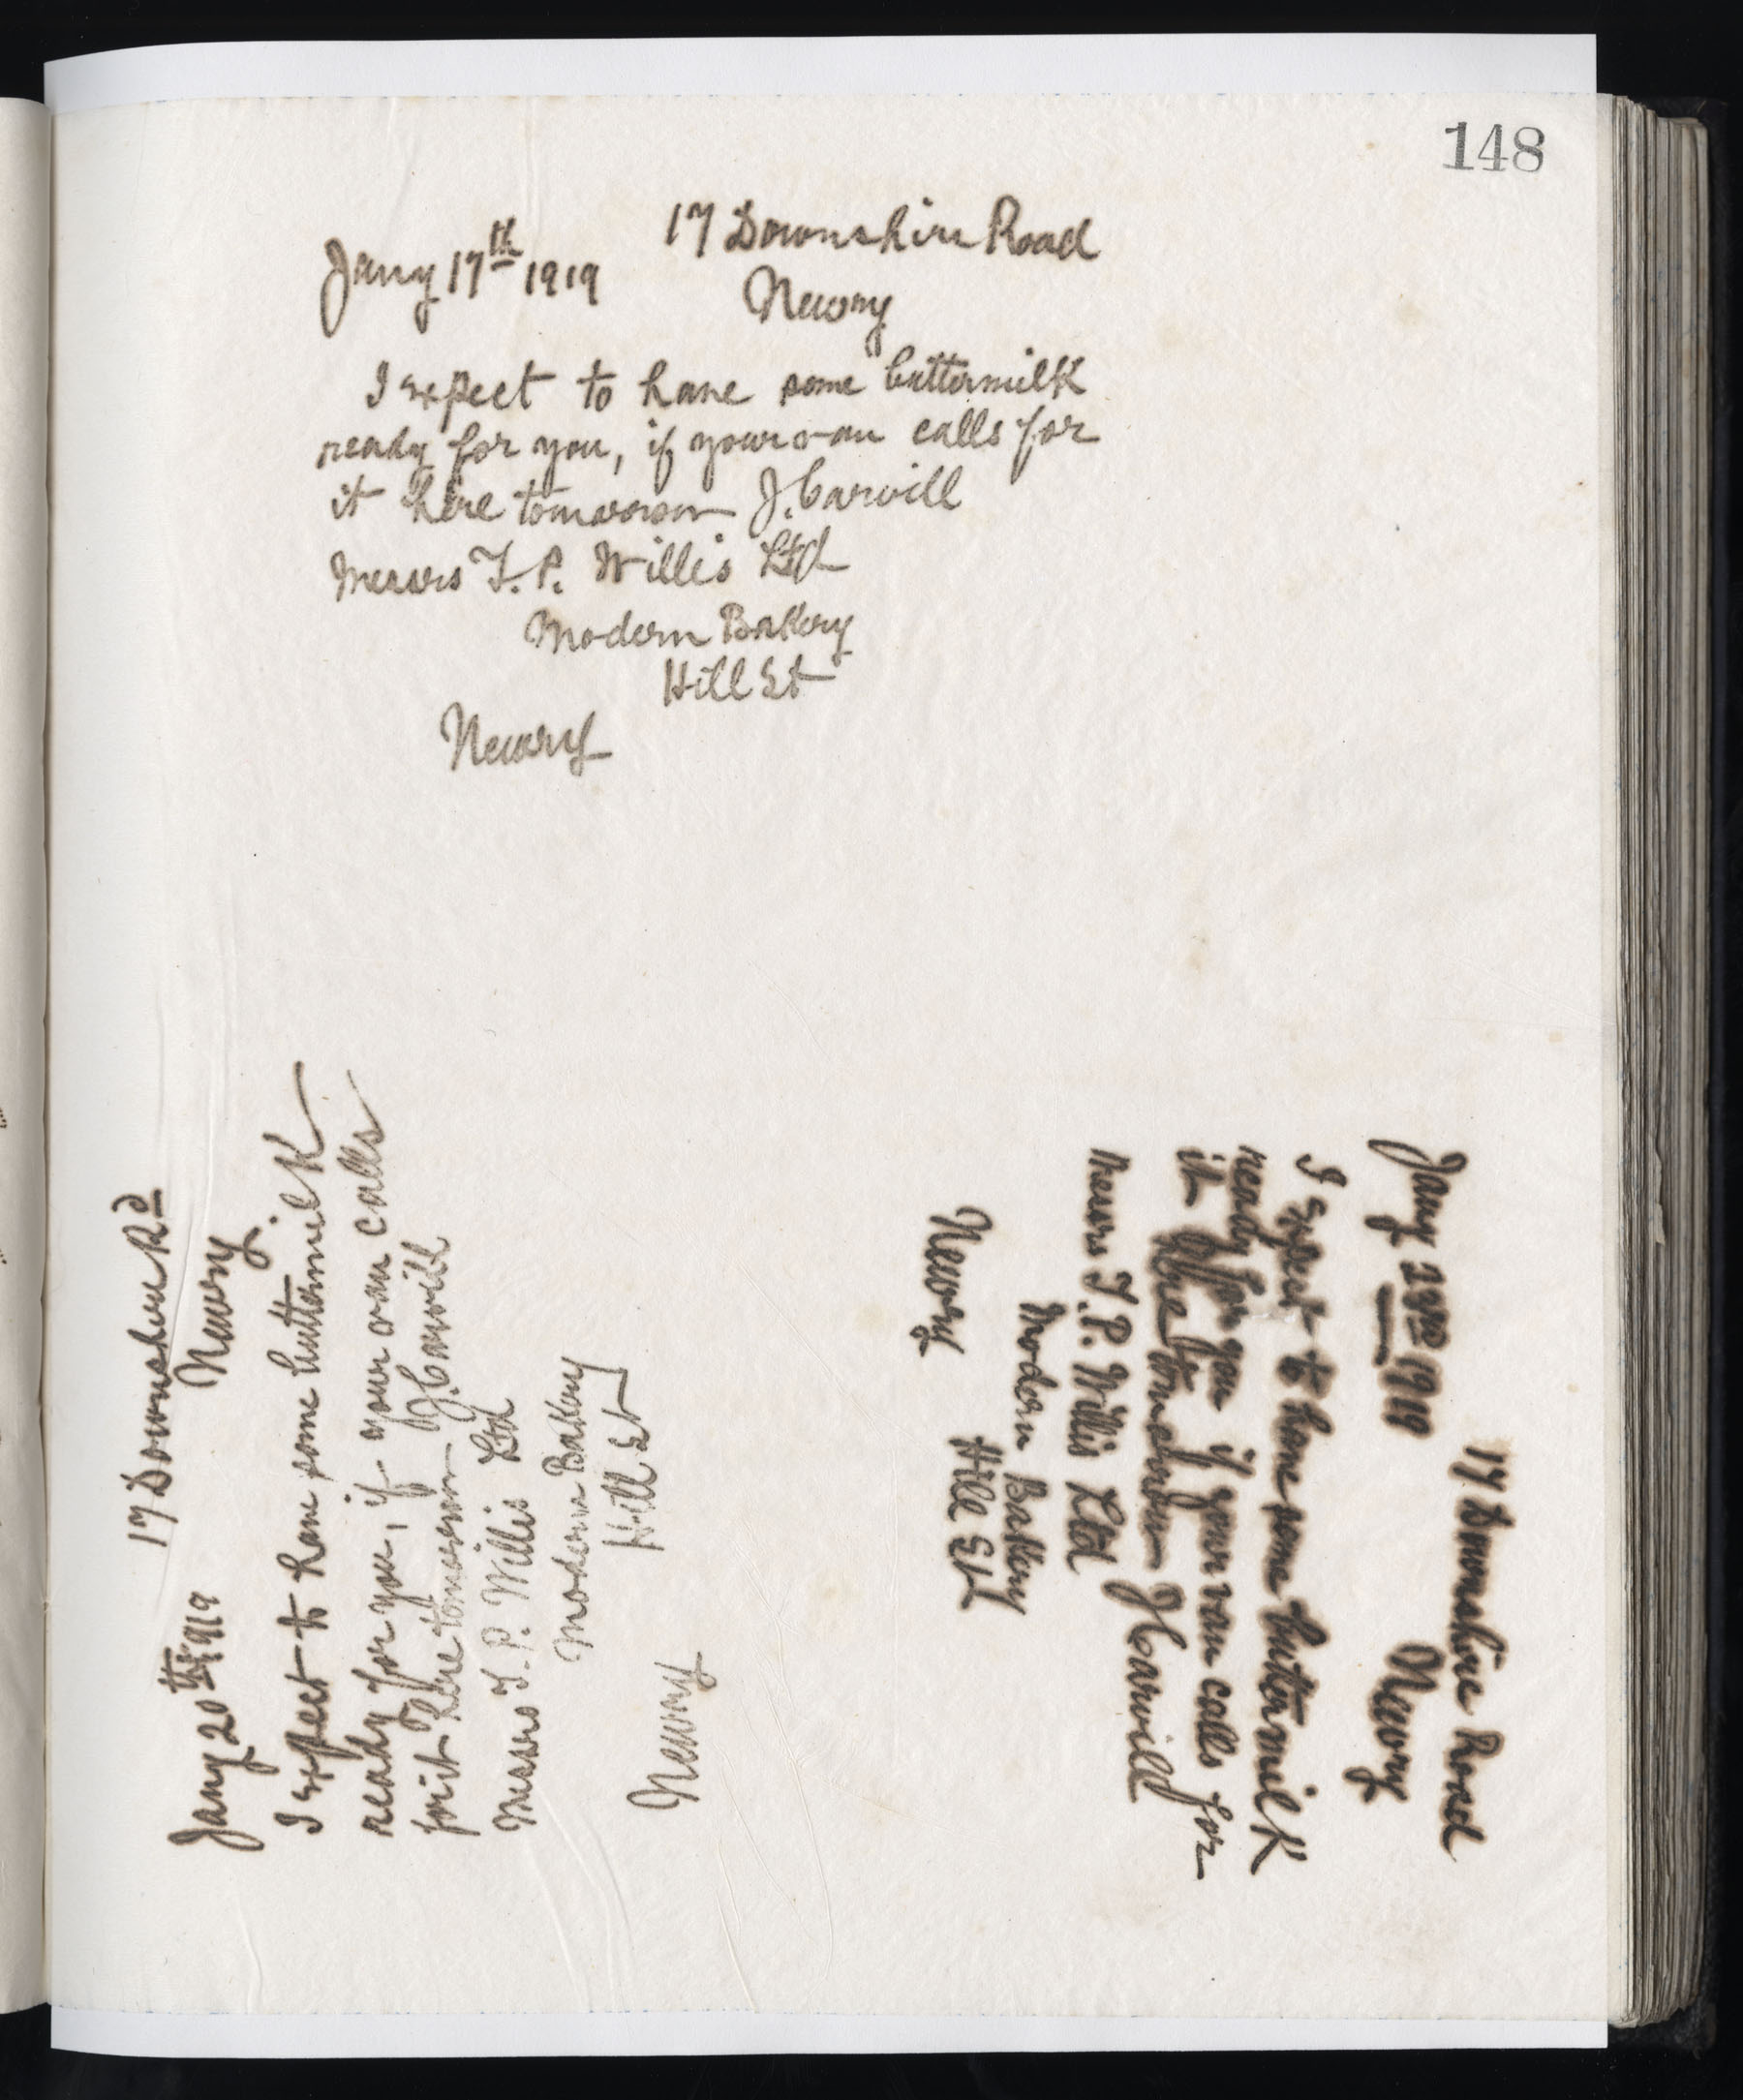 148
17 Downshire Road
Jany 17th 1919
Newry
I expect to have some buttermilk
ready for you, if your van calls for
it here tomorrow J. Carvill
Messrs T. P. Willis Ltd
Modern Bakery
Hill St
Newry
17 Downshire Rd
Jany 20th 1919
Newry
I expect to have some buttermilk
ready for you, if your van calls
for it here tomorrow J. Carvill
Messrs T. P. Willis Ltd
Modern Bakery
Hill St
Newry
17 Downshire Road
Jany 1919
Newry
I expect to have some buttermilk
ready for you if your van calls for
it here tomorrow J Carvill
Messrs T. P. Willis Ltd
Modern Bakery
Hill St
Newry